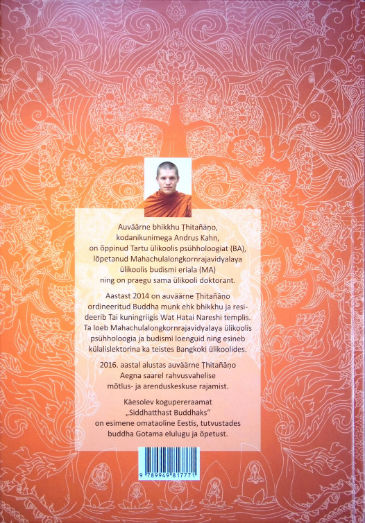 Auväärne bhikkhu Ṭhitañāṇo,
kodanikunimega Andrus Kahn,
on õppinud Tartu ülikoolis psühholoogiat (BA),
lõpetanud Mahachulalongkornrajavidyalaya
ülikoolis budismi eriala (MA)
ning on praegu sama ülikooli doktorant.
Aastast 2014 on auväärne Ṭhitañāṇo
ordineeritud Buddha munk ehk bhikkhu ja resi-
deerib Tai kuningriigis Wat Hatai Nareshi templis.
Ta loeb Mahachulalongkornrajavidyalaya ülikoolis
psühholoogia ja budismi loenguid ning esineb
külalislektorina ka teistes Bangkoki ülikoolides.
2016. aastal alustas auväärne Ṭhitañāṇo
Aegna saarel rahvusvahelise
mõtlus- ja arenduskeskuse rajamist.
Käesolev kogupereraamat
„Siddhatthast Buddhaks”
on esimene omataoline Eestis, tutvustades
buddha Gotama elulugu ja õpetust.
9 789949 817771